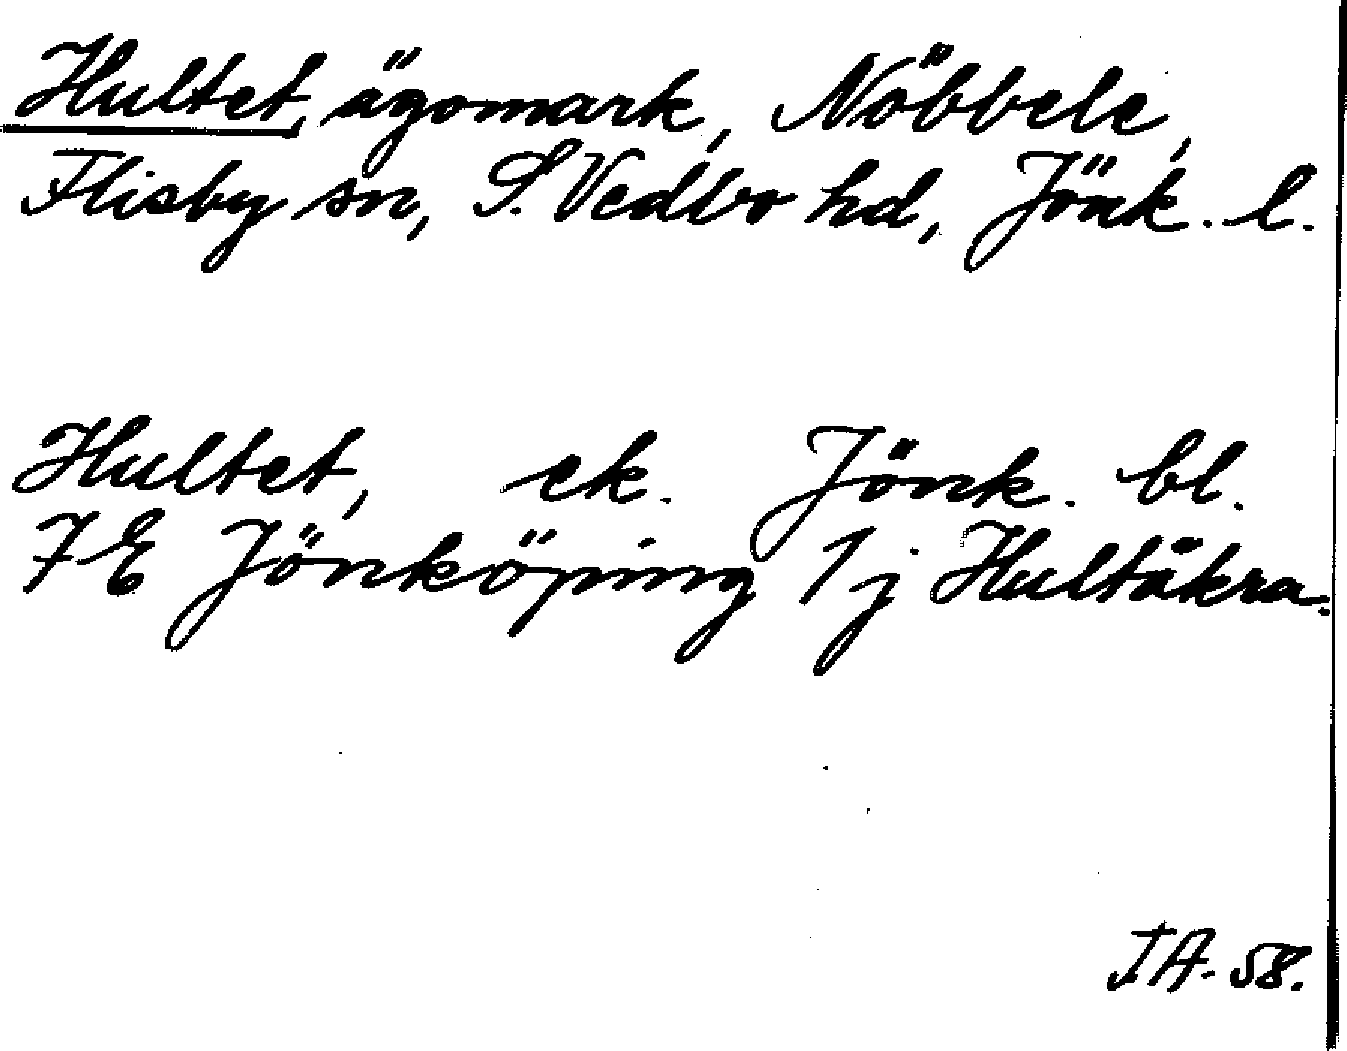 Hultet, ägomark, Nöbbele,
Flisby sn, S. Vedbo hd, Jönk. l.
Hultet, ek. Jönk. bl.
7E Jönköping 1j Hultåkra.
IA-58.